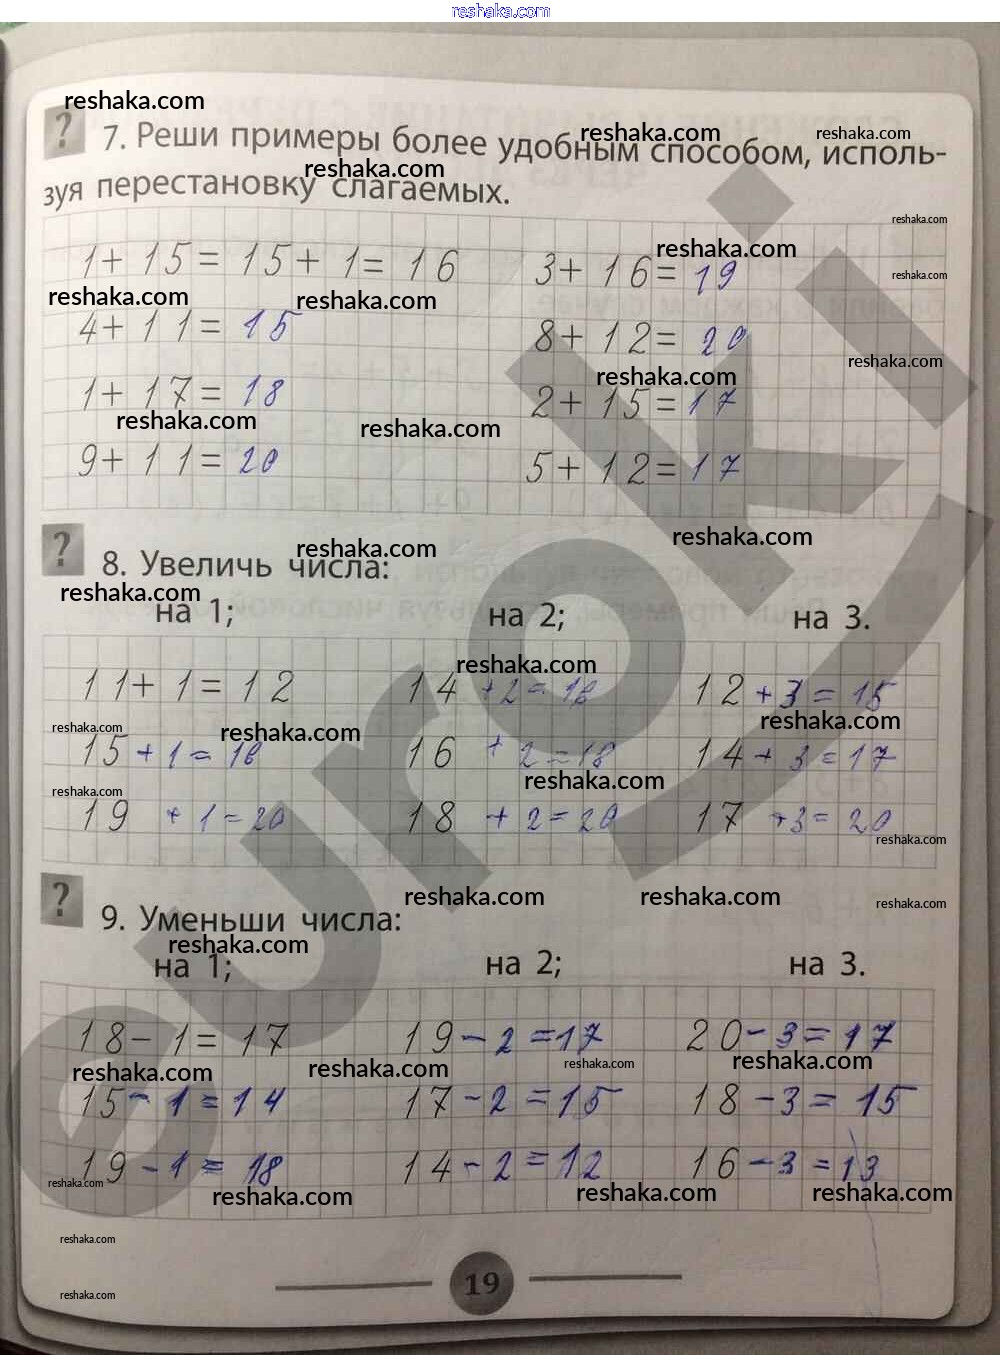 reshaka.com
reshaka.com
7. Реши примеры более удобным способом, исполь-
reshaka.com reshaka.com
reshaka.com
зуя перестановку слагаемых.
reshaka.com
1 + 15 = 15 + 1 = 16 3 + 16 = 19
reshaka.com
reshaka.com
reshaka.com reshaka.com
4 + 11 = 15 8 + 12 = 20
reshaka.com
reshaka.com
1 + 17 = 18 2 + 15 = 17
reshaka.com reshaka.com
9 + 11 = 20 5 + 12 = 17
reshaka.com
reshaka.com
8. Увеличь числа:
reshaka.com
на 1; на 2; на 3.
reshaka.com
11 + 1 = 12 14 + 2 = 16 12 + 3 = 15
reshaka.com reshaka.com reshaka.com
15 + 1 = 16 16 + 2 = 18 14 + 3 = 17
reshaka.com reshaka.com
19 + 1 = 20 18 + 2 = 20 17 + 3 = 20
reshaka.com
reshaka.com reshaka.com reshaka.com
9. Уменьши числа:
reshaka.com
на 1; на 2; на 3.
18 - 1 = 17 19 - 2 = 17 20 - 3 = 17
reshaka.com reshaka.com reshaka.com reshaka.com
15 - 1 = 14 17 - 2 = 15 18 - 3 = 15
19 - 1 = 18 14 - 2 = 12 16 - 3 = 13
reshaka.com reshaka.com reshaka.com reshaka.com
reshaka.com
19
reshaka.com
euroki